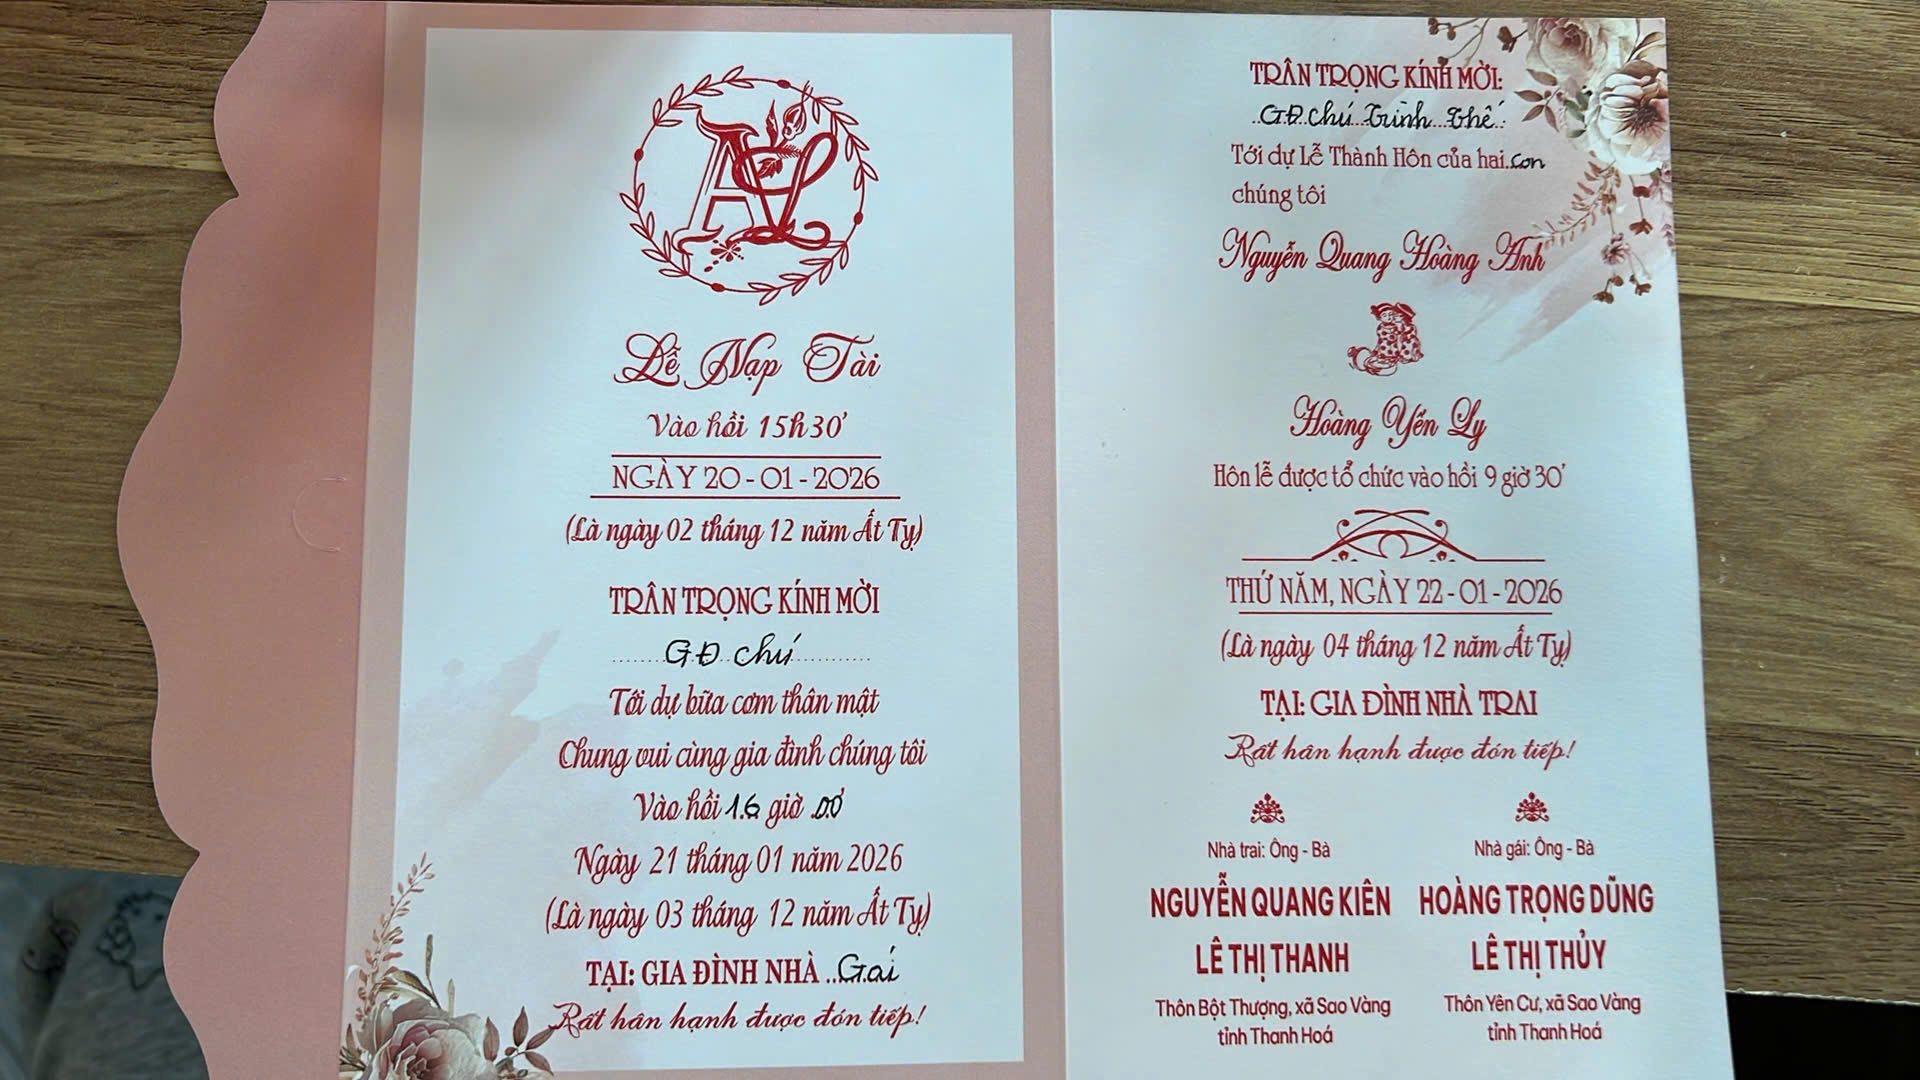 AL
Lễ Nạp Tài
Vào hồi 15h30'
NGÀY 20-01-2026
(Là ngày 02 tháng 12 năm Ất Tỵ)
TRÂN TRỌNG KÍNH MỜI
GĐ chú
Tới dự bữa cơm thân mật
Chung vui cùng gia đình chúng tôi
Vào hồi 16 giờ 00'
Ngày 21 tháng 01 năm 2026
(Là ngày 03 tháng 12 năm Ất Tỵ)
TẠI: GIA ĐÌNH NHÀ Gái
Rất hân hạnh được đón tiếp!
TRÂN TRỌNG KÍNH MỜI:
GĐ chú Trình Thế
Tới dự Lễ Thành Hôn của hai con
chúng tôi
Nguyễn Quang Hoàng Anh
Hoàng Yến Ly
Hôn lễ được tổ chức vào hồi 9 giờ 30'
THỨ NĂM, NGÀY 22-01-2026
(Là ngày 04 tháng 12 năm Ất Tỵ)
TẠI: GIA ĐÌNH NHÀ TRAI
Rất hân hạnh được đón tiếp!
Nhà trai: Ông - Bà
NGUYỄN QUANG KIÊN
LÊ THỊ THANH
Thôn Bột Thượng, xã Sao Vàng
tỉnh Thanh Hoá
Nhà gái: Ông - Bà
HOÀNG TRỌNG DŨNG
LÊ THỊ THỦY
Thôn Yên Cư, xã Sao Vàng
tỉnh Thanh Hoá